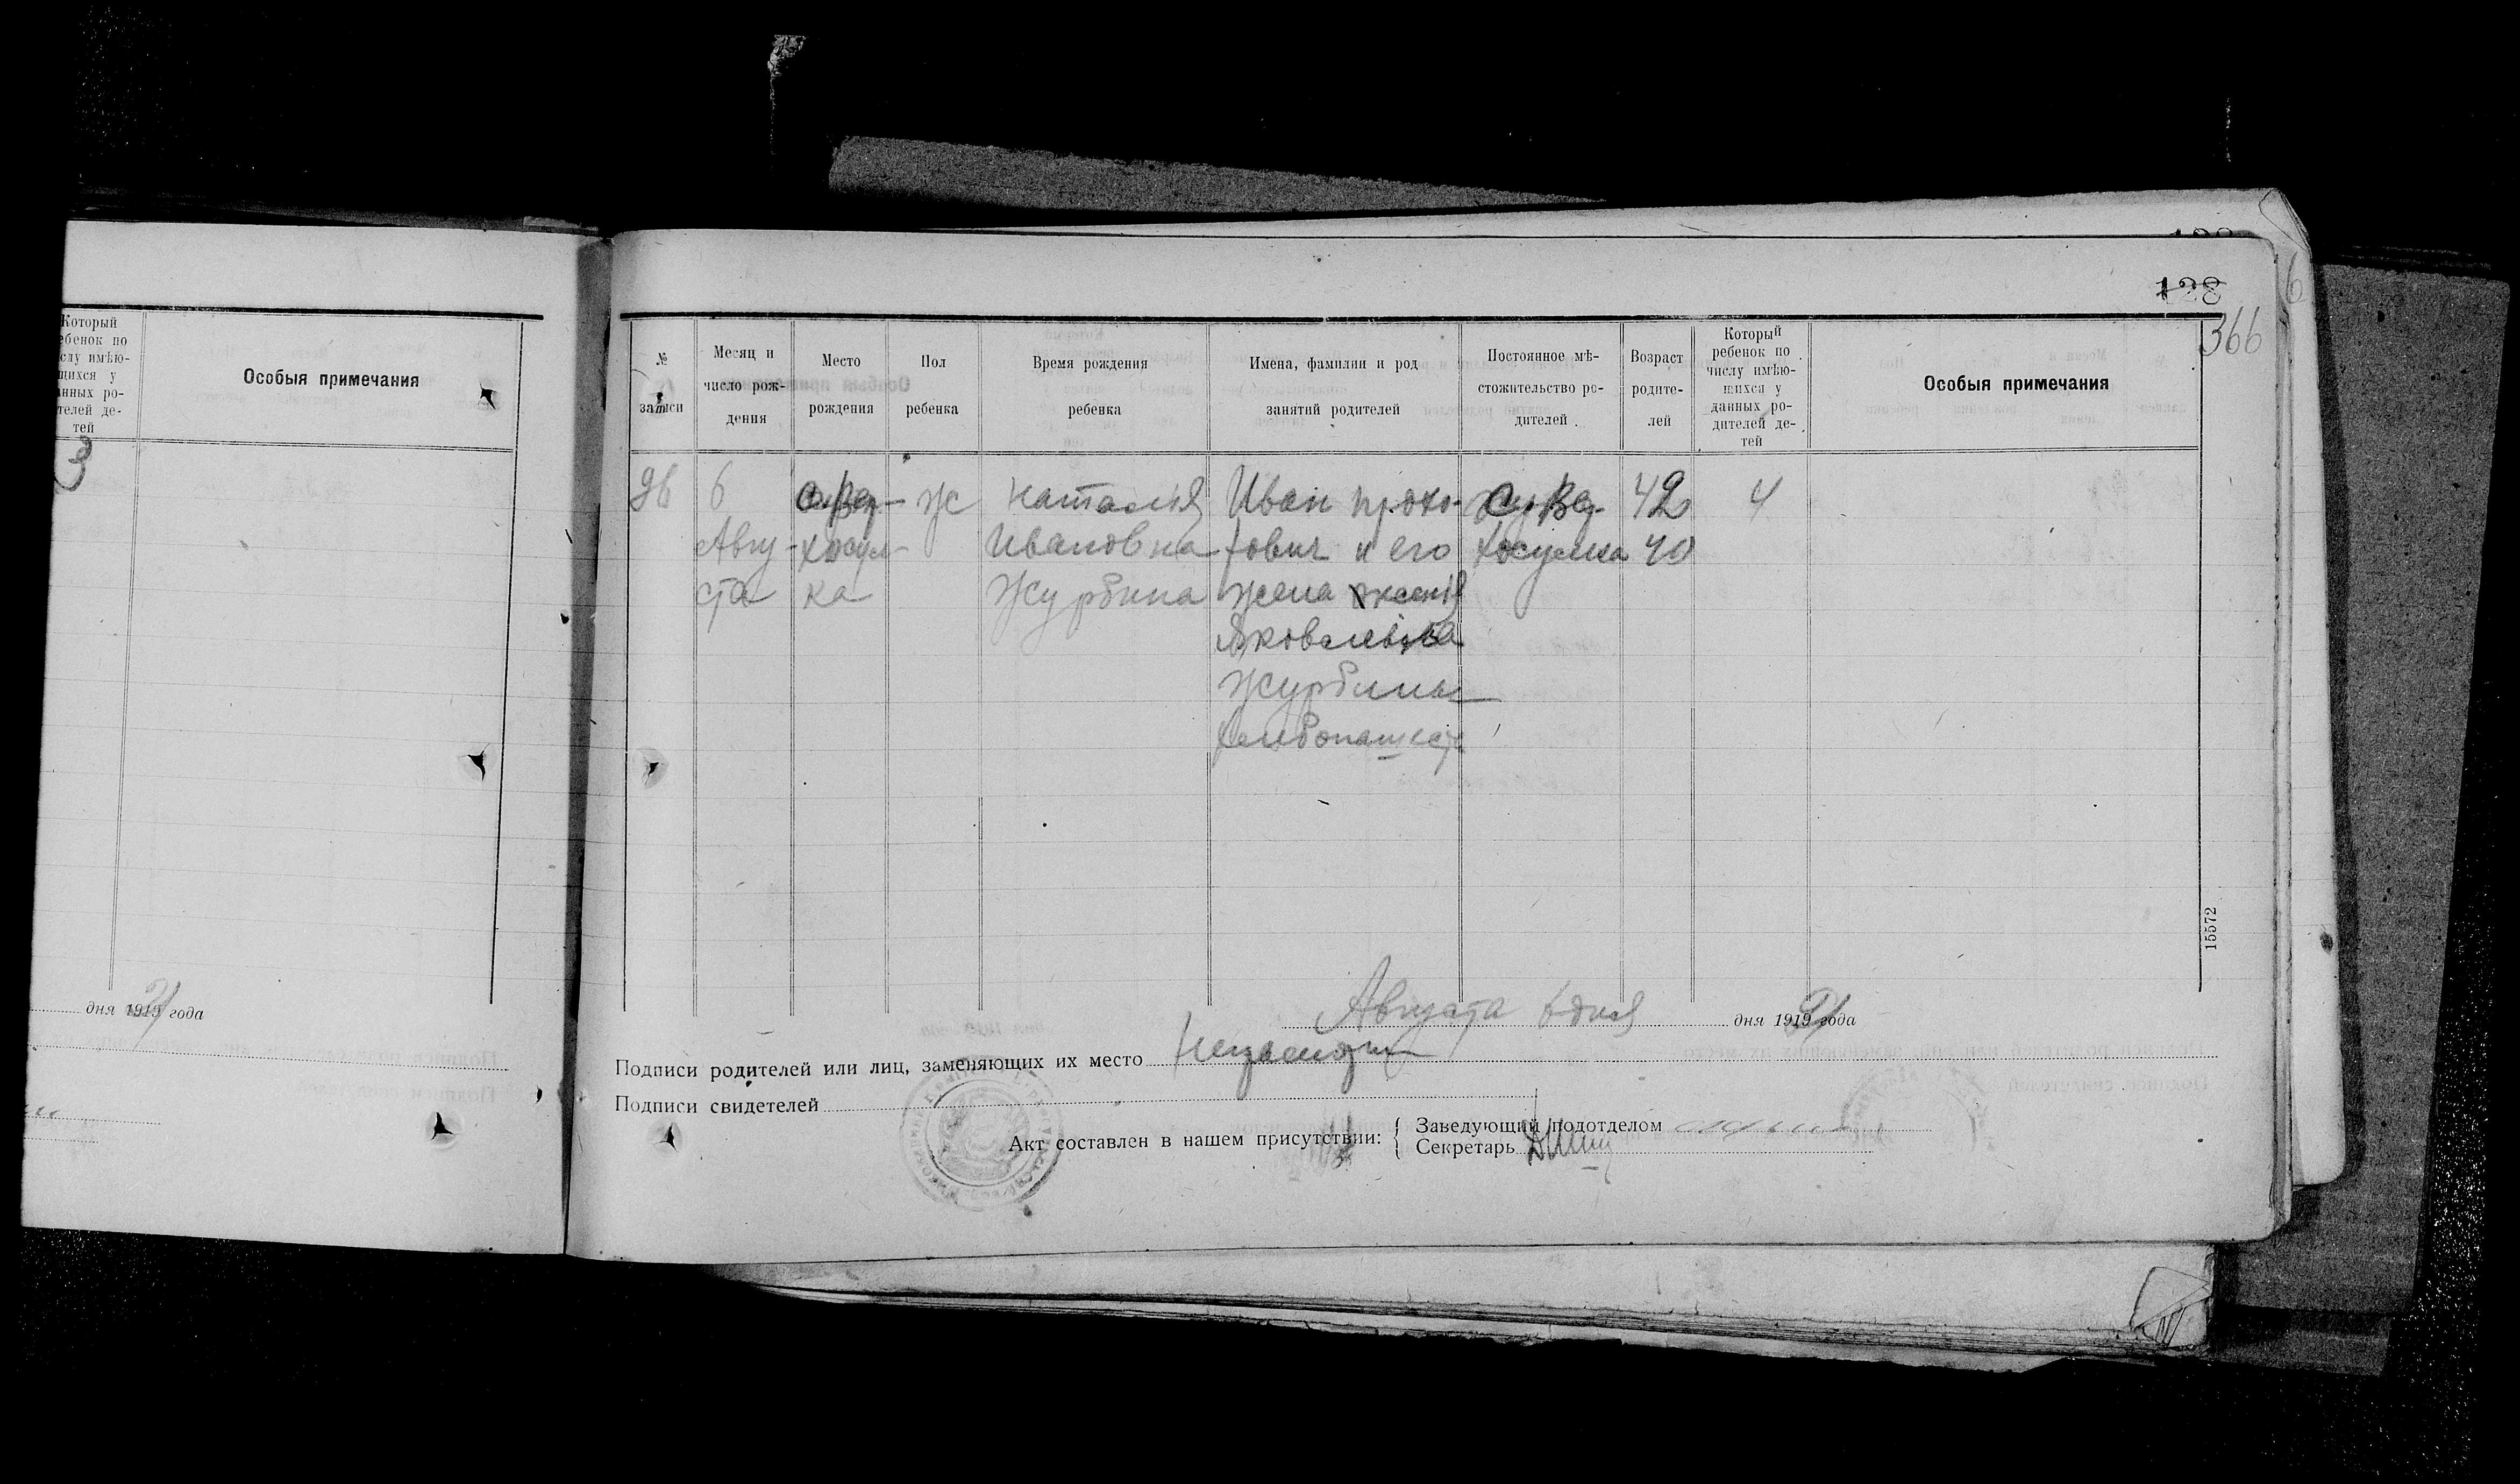 138
128
366
6
Который
ебенок по
слу имѣю-
щихся у
анных ро-
телей де-
тей
Особыя примечания
3
дня 1919 21 года
№
записи
Месяц и
число рож-
дения
Место
рождения
Пол
ребенка
Время рождения
ребенка
Имена, фамилии и род
занятий родителей
Постоянное мѣ-
стожительство ро-
дителей
Возраст
родите-
лей
Который
ребенок по
числу имѣю-
щихся у
данных ро-
дителей де-
тей
Особыя примечания
96
6
Авгу-
ста
с. Вер-
хосул-
ка
Ж
Наталия
Ивановна
Журбина
Иван Прохо-
рович и его
жена Ксения
Яковлевна
Журбины
Хлебопашест
с. Вер
хосулка
42
40
4
15572
Августа 6 дня дня 1919 21 года
Подписи родителей или лиц, заменяющих их место
Подписи свидетелей
Акт составлен в нашем присутствии:
Заведующий подотделом
Секретарь